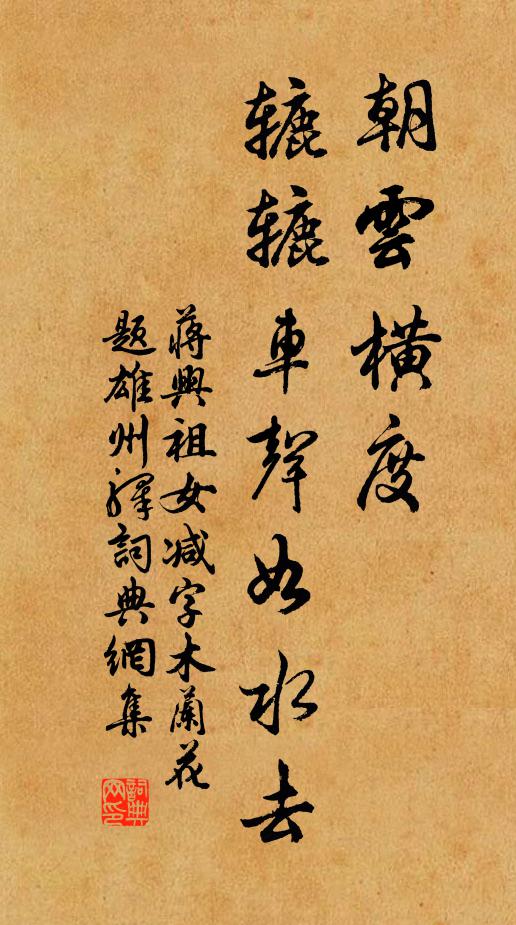 朝雲横度
辘辘車聲如水去
蔣興祖女减字木蘭花
题雄州驛詞典網集
詞典網印